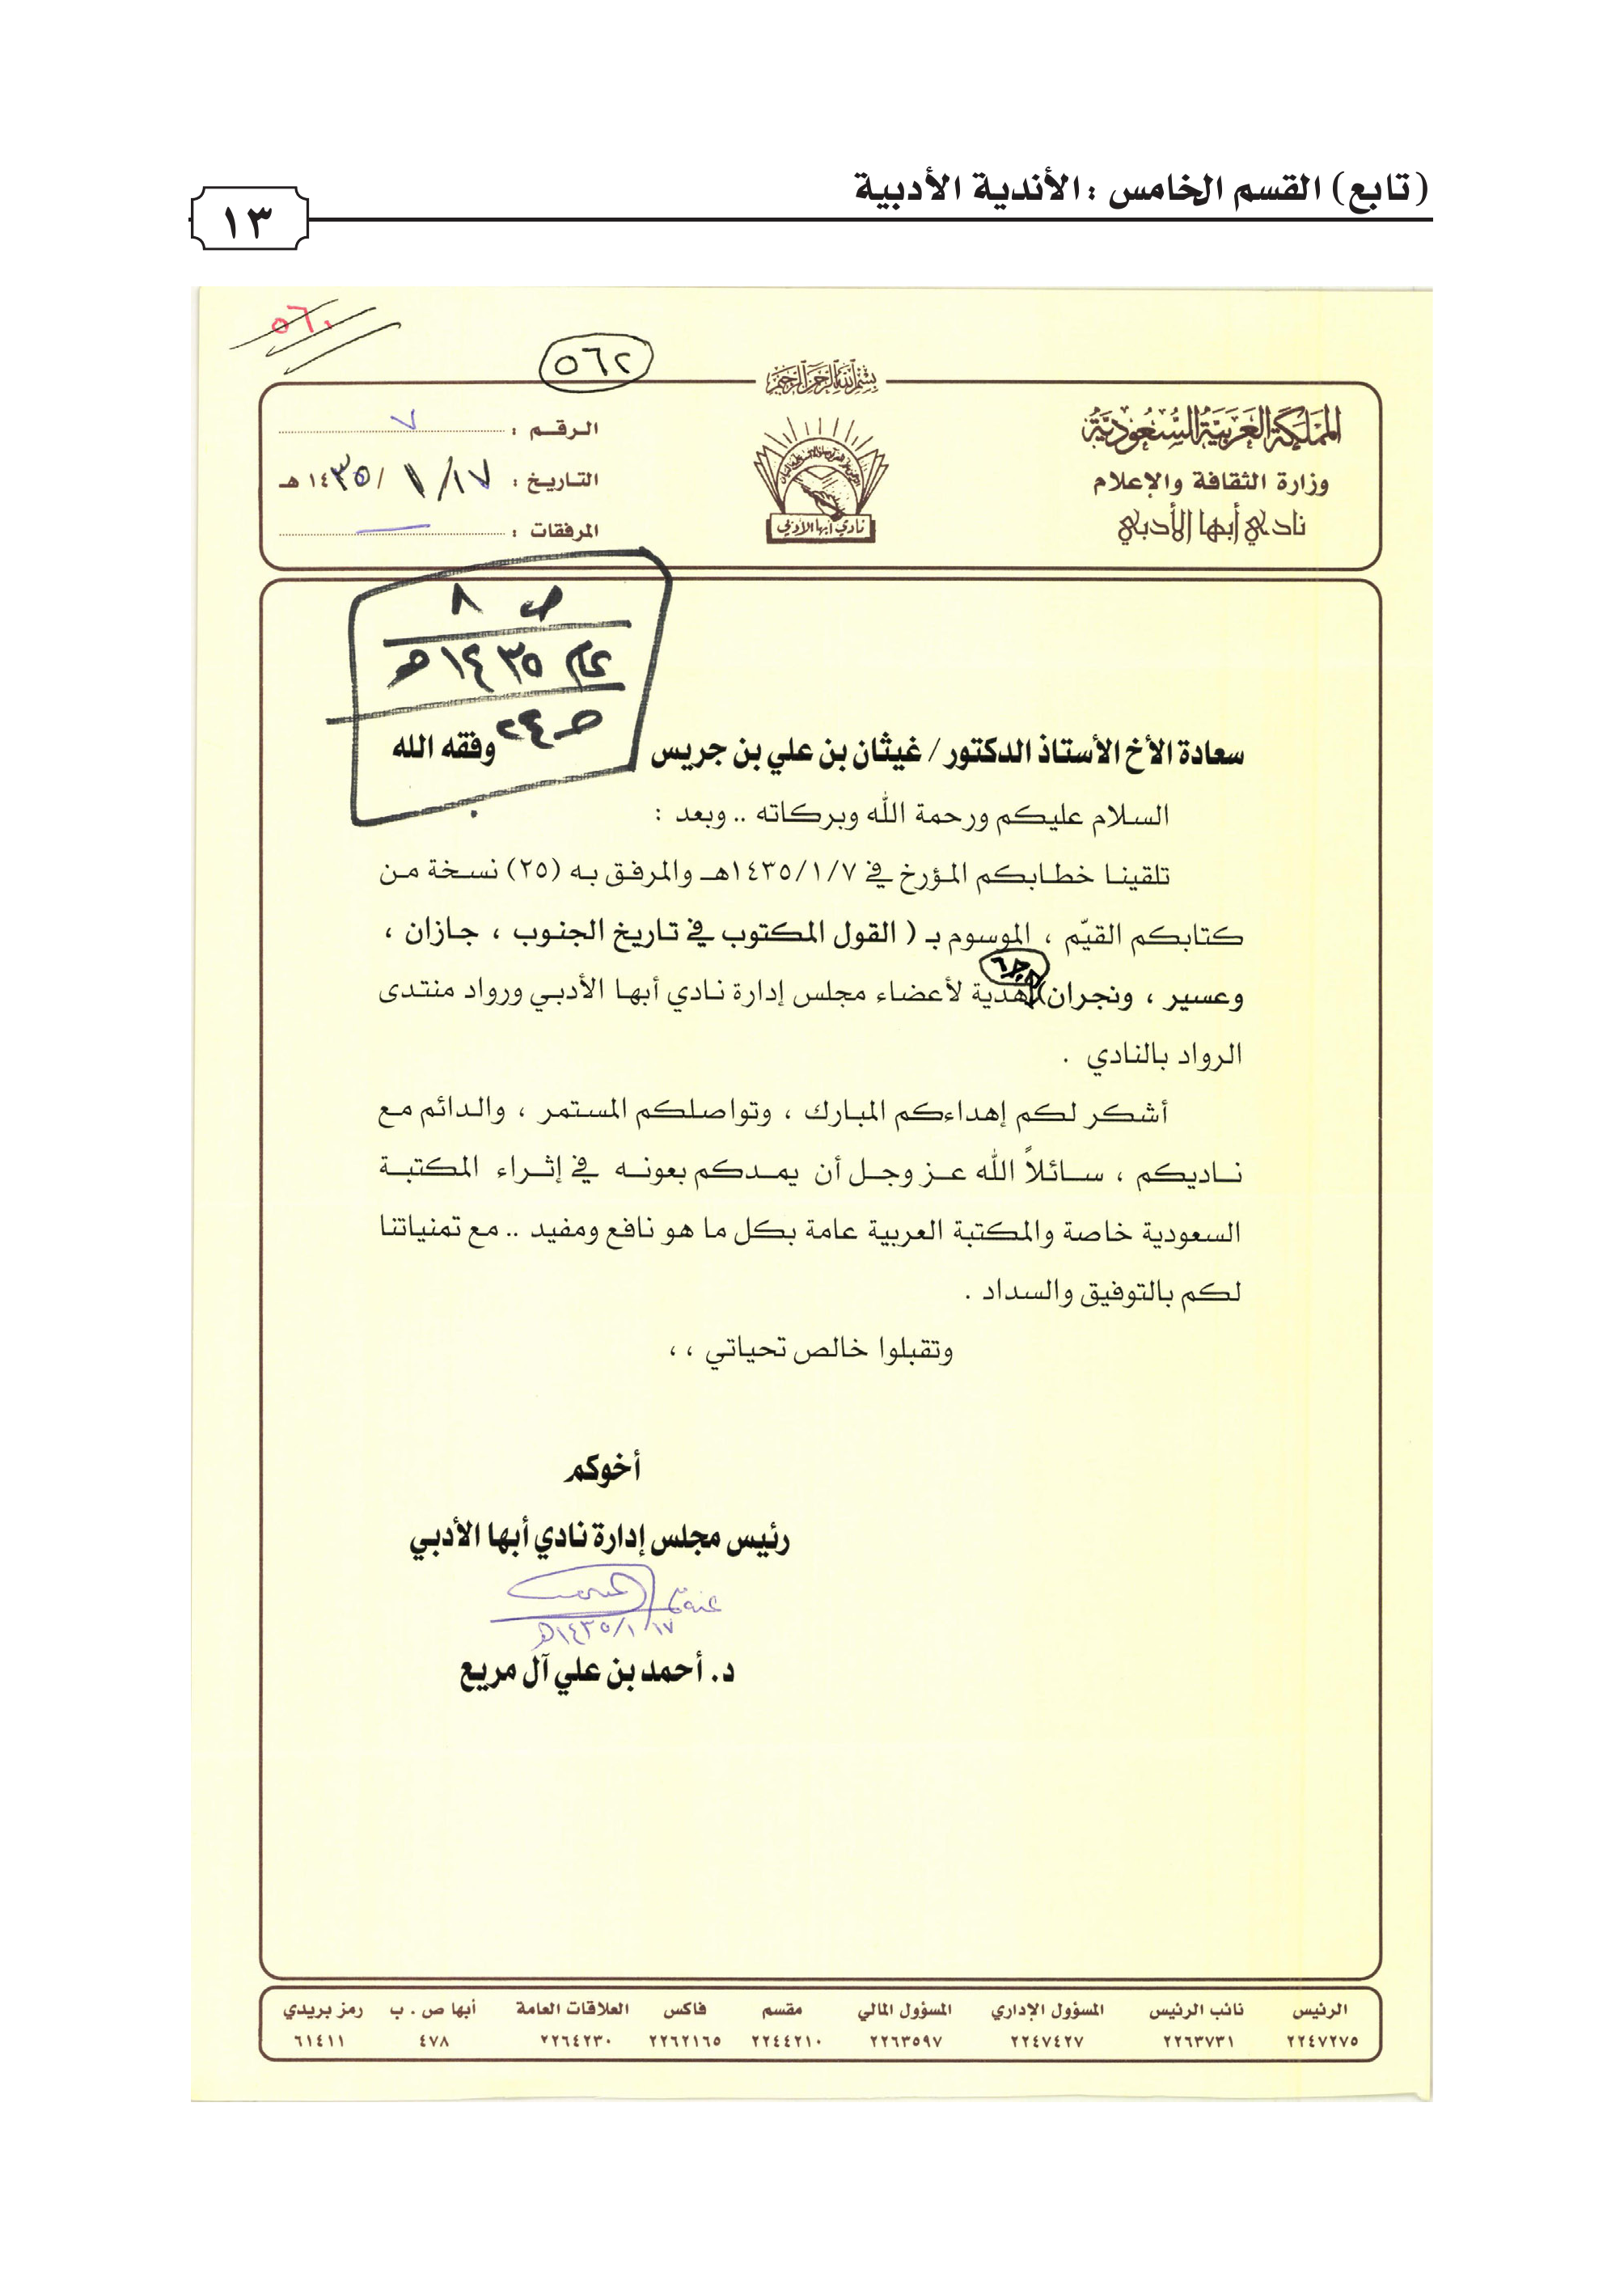 (تابع) القسم الخامس : الأندية الأدبية
١٣
٥٦٠
٥٦٢
بسم الله الرحمن الرحيم
المملكة العربية السعودية
وزارة الثقافة والإعلام
نادي أبها الأدبي
نادي أبها الأدبي
الرقم : ٧
التاريخ : ١٧/ ١ /١٤٣٥هـ
المرفقات :
ص ٨
عام ١٤٣٥هـ
صـ٢٤
سعادة الأخ الأستاذ الدكتور/ غيثان بن علي بن جريس وفقه الله
السلام عليكم ورحمة الله وبركاته .. وبعد :
تلقينا خطابكم المؤرخ في ١٤٣٥/١/٧هـ والمرفق به (٢٥) نسخة من
كتابكم القيّم ، الموسوم بـ ( القول المكتوب في تاريخ الجنوب ، جازان ،
جـ٦
وعسير ، ونجران) هدية لأعضاء مجلس إدارة نادي أبها الأدبي ورواد منتدى
الرواد بالنادي .
أشكر لكم إهداءكم المبارك ، وتواصلكم المستمر ، والدائم مع
ناديكم ، سائلاً الله عز وجل أن يمدكم بعونه في إثراء المكتبة
السعودية خاصة والمكتبة العربية عامة بكل ما هو نافع ومفيد .. مع تمنياتنا
لكم بالتوفيق والسداد .
وتقبلوا خالص تحياتي ، ،
أخوكم
رئيس مجلس إدارة نادي أبها الأدبي
١٤٣٥/١/١٧هـ
د. أحمد بن علي آل مريع
الرئيس نائب الرئيس المسؤول الإداري المسؤول المالي مقسم فاكس العلاقات العامة أبها ص . ب رمز بريدي
٢٢٤٧٢٧٥ ٢٢٦٣٧٣١ ٢٢٤٧٤٢٧ ٢٢٦٣٥٩٧ ٢٢٤٤٢١٠ ٢٢٦٢١٦٥ ٢٢٦٤٢٣٠ ٤٧٨ ٦١٤١١